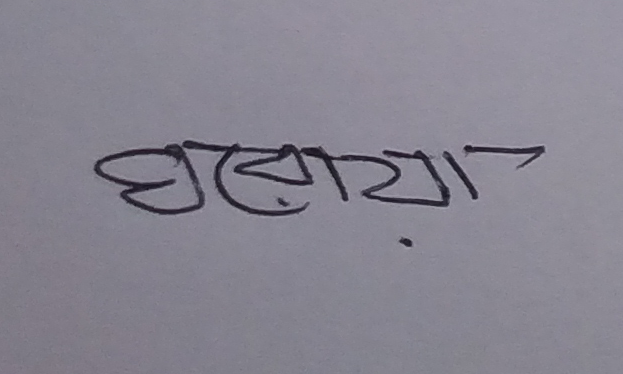 ঘরোয়া